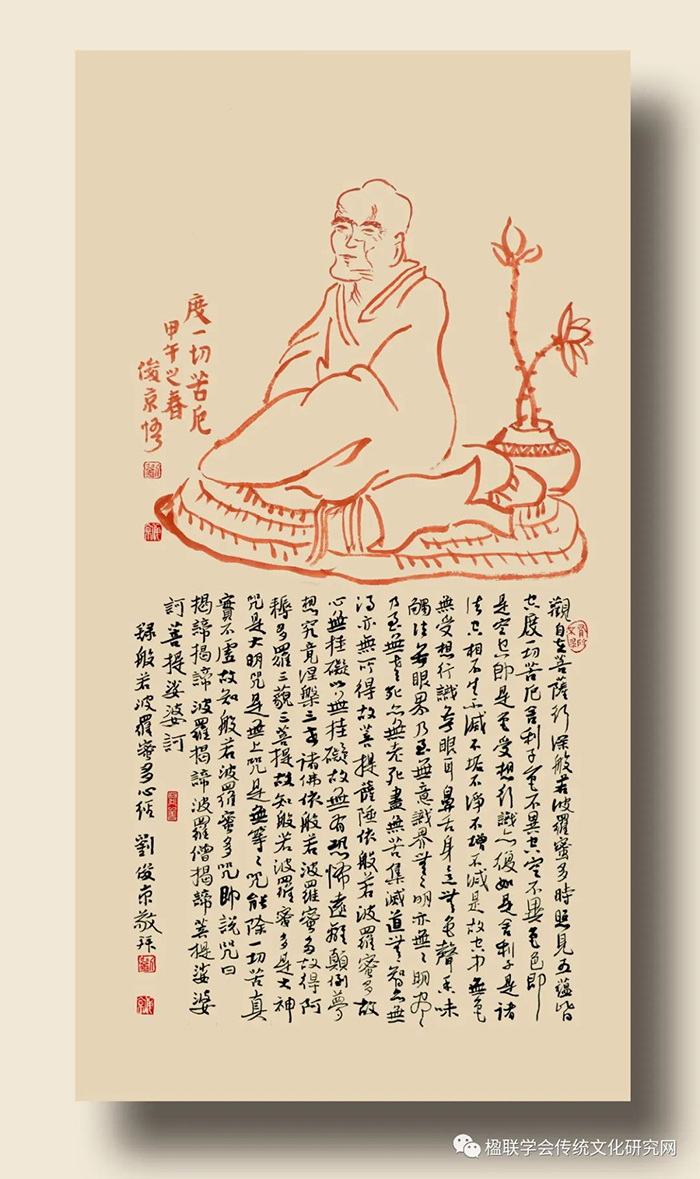 度一切苦厄
甲午之春
俊京悟
觀自在菩薩行深般若波羅蜜多時照見五蘊皆
空度一切苦厄舍利子色不異空空不異色色即
是空空即是色受想行識亦復如是舍利子是諸
法空相不生不滅不垢不淨不增不減是故空中無色
無受想行識無眼耳鼻舌身意無色聲香味
觸法無眼界乃至無意識界無無明亦無無明盡
乃至無老死亦無老死盡無苦集滅道無智亦無
得亦無所得故菩提薩埵依般若波羅蜜多故
心無挂礙以無挂礙故無有恐怖遠離顛倒夢
想究竟涅槃三世諸佛依般若波羅蜜多故得阿
耨多羅三藐三菩提故知般若波羅蜜多是大神
咒是大明咒是無上咒是無等等咒能除一切苦真
實不虛故知般若波羅蜜多咒即說咒曰
揭諦揭諦波羅揭諦波羅僧揭諦菩提娑婆
訶菩提娑婆訶
錄般若波羅蜜多心經 劉俊京敬拜
楹联学会传统文化研究网